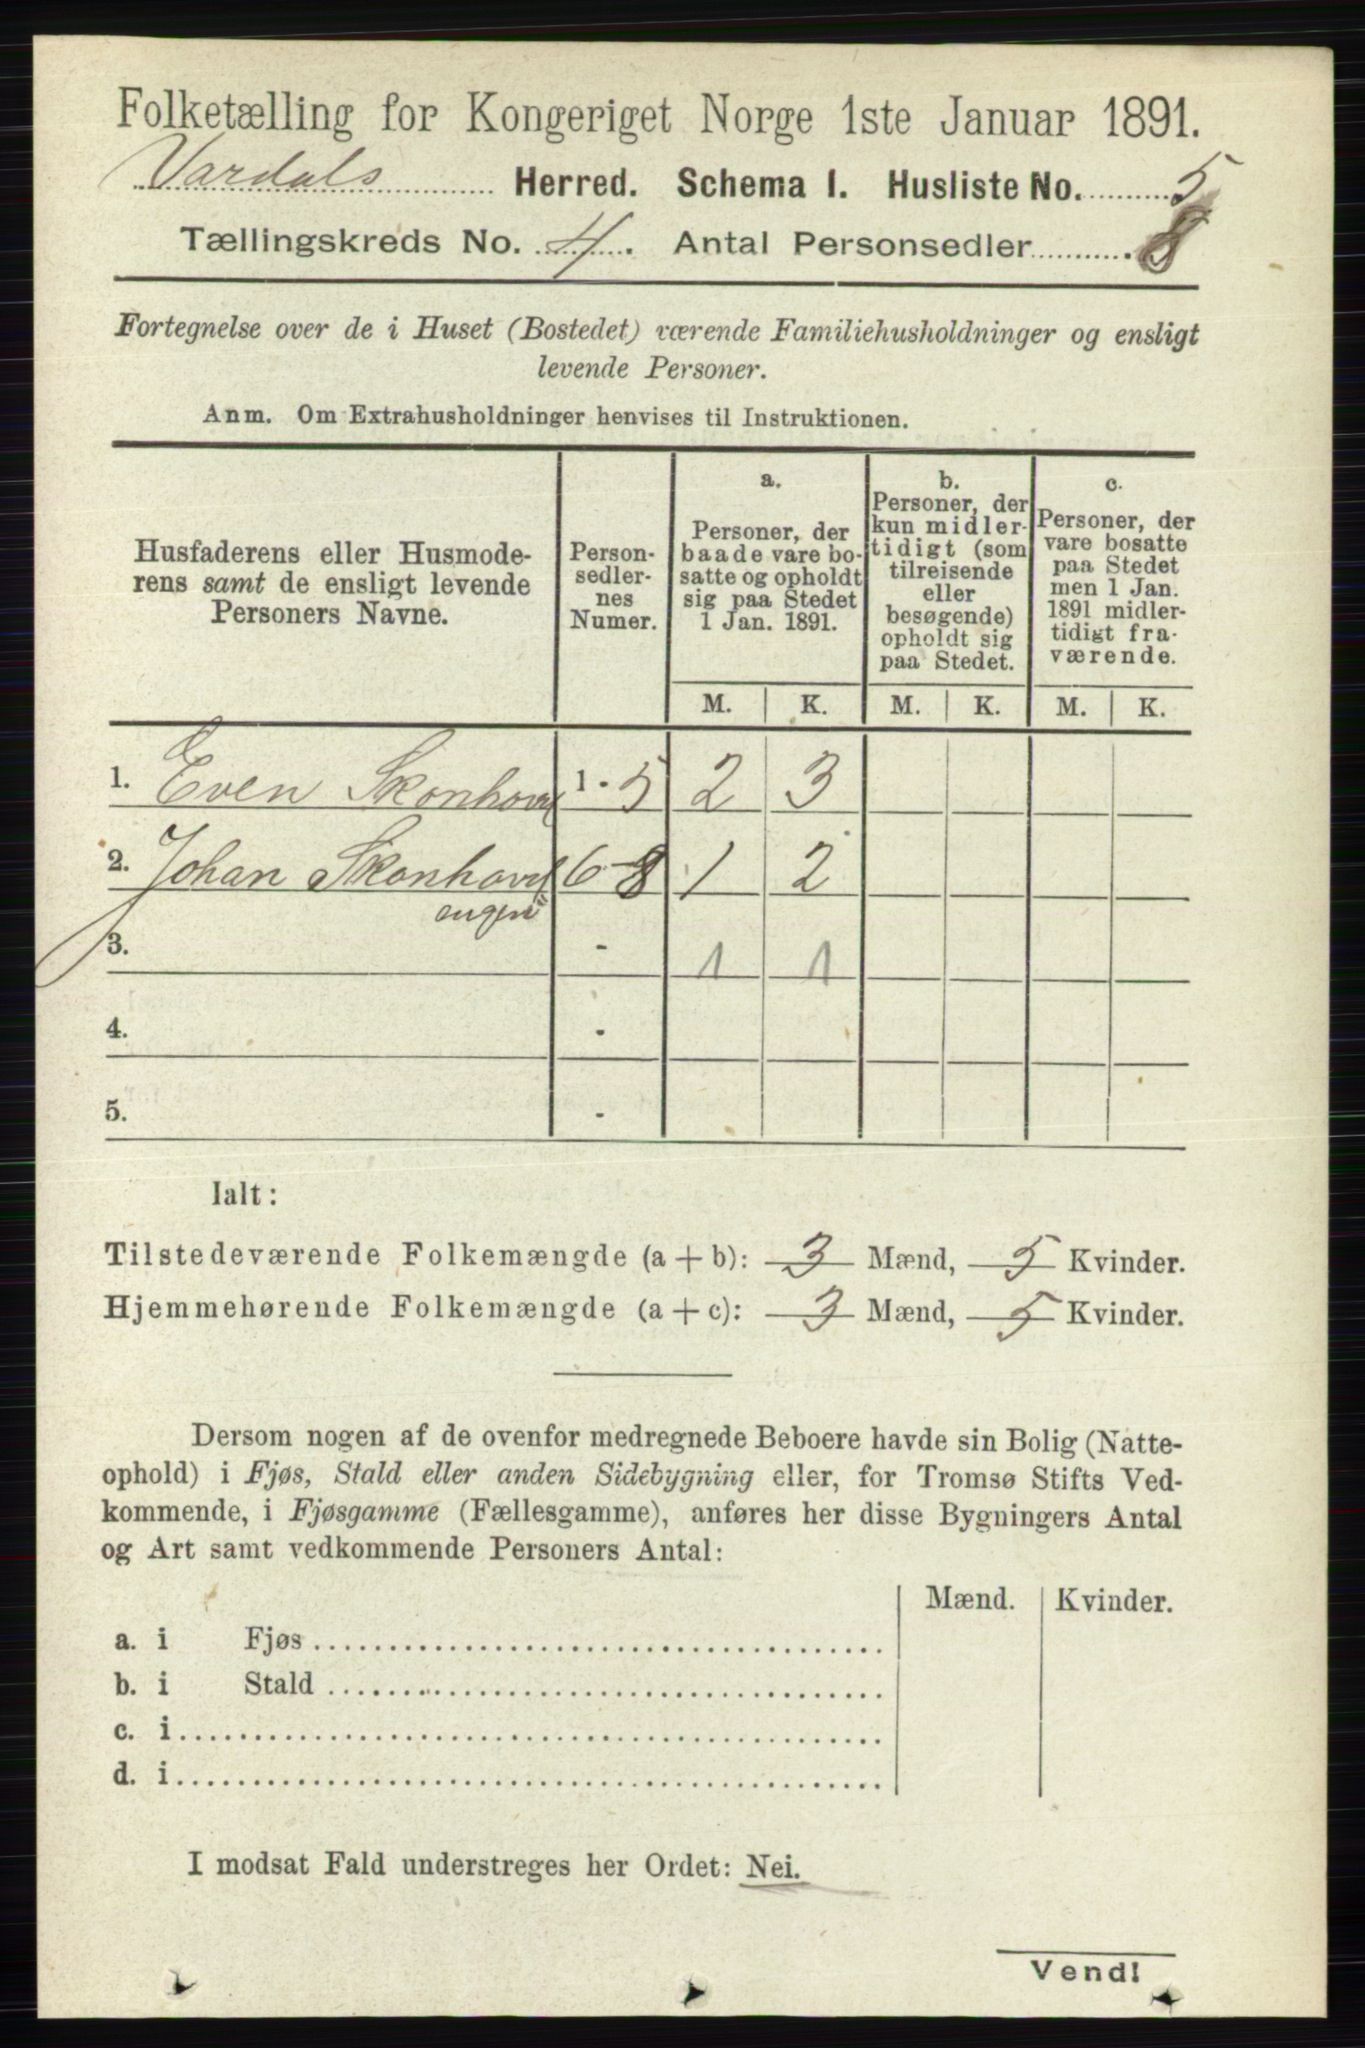 Folketælling for Kongeriget Norge 1ste Januar 1891.
Vardals Herred. Schema 1. Husliste No. 5
Tællingskreds No. 4. Antal Personsedler 8
Fortegnelse over de i Huset (Bostedet) værende Familiehusholdninger og ensligt
levende Personer.
Anm. Om Extrahusholdninger henvises til Instruktionen.
Husfaderens eller Husmode-
rens samt de ensligt levende
Personers Navne.
Person-
sedler-
nes
Numer.
a.
Personer, der
baade vare bo-
satte og opholdt
sig paa Stedet
1 Jan. 1891.
b.
Personer, der
kun midler-
tidigt (som
tilreisende
eller
besøgende)
opholdt sig
paa Stedet.
c.
Personer, der
vare bosatte
paa Stedet
men 1 Jan.
1891 midler-
tidigt fra-
værende.
M. K. M. K. M. K.
1. Even Skonhovd 1-5 2 3
2. Johan Skonhovd 6-8 1 2
engen
3. - 1 1
4. -
5. -
Ialt:
Tilstedeværende Folkemængde (a + b): 3 Mænd, 5 Kvinder.
Hjemmehørende Folkemængde (a + c): 3 Mænd, 5 Kvinder.
Dersom nogen af de ovenfor medregnede Beboere havde sin Bolig (Natte-
ophold) i Fjøs, Stald eller anden Sidebygning eller, for Tromsø Stifts Ved-
kommende, i Fjøsgamme (Fællesgamme), anføres her disse Bygningers Antal
og Art samt vedkommende Personers Antal:
Mænd. Kvinder.
a. i Fjøs
b. i Stald
c. i
d. i
I modsat Fald understreges her Ordet: Nei.
Vend!